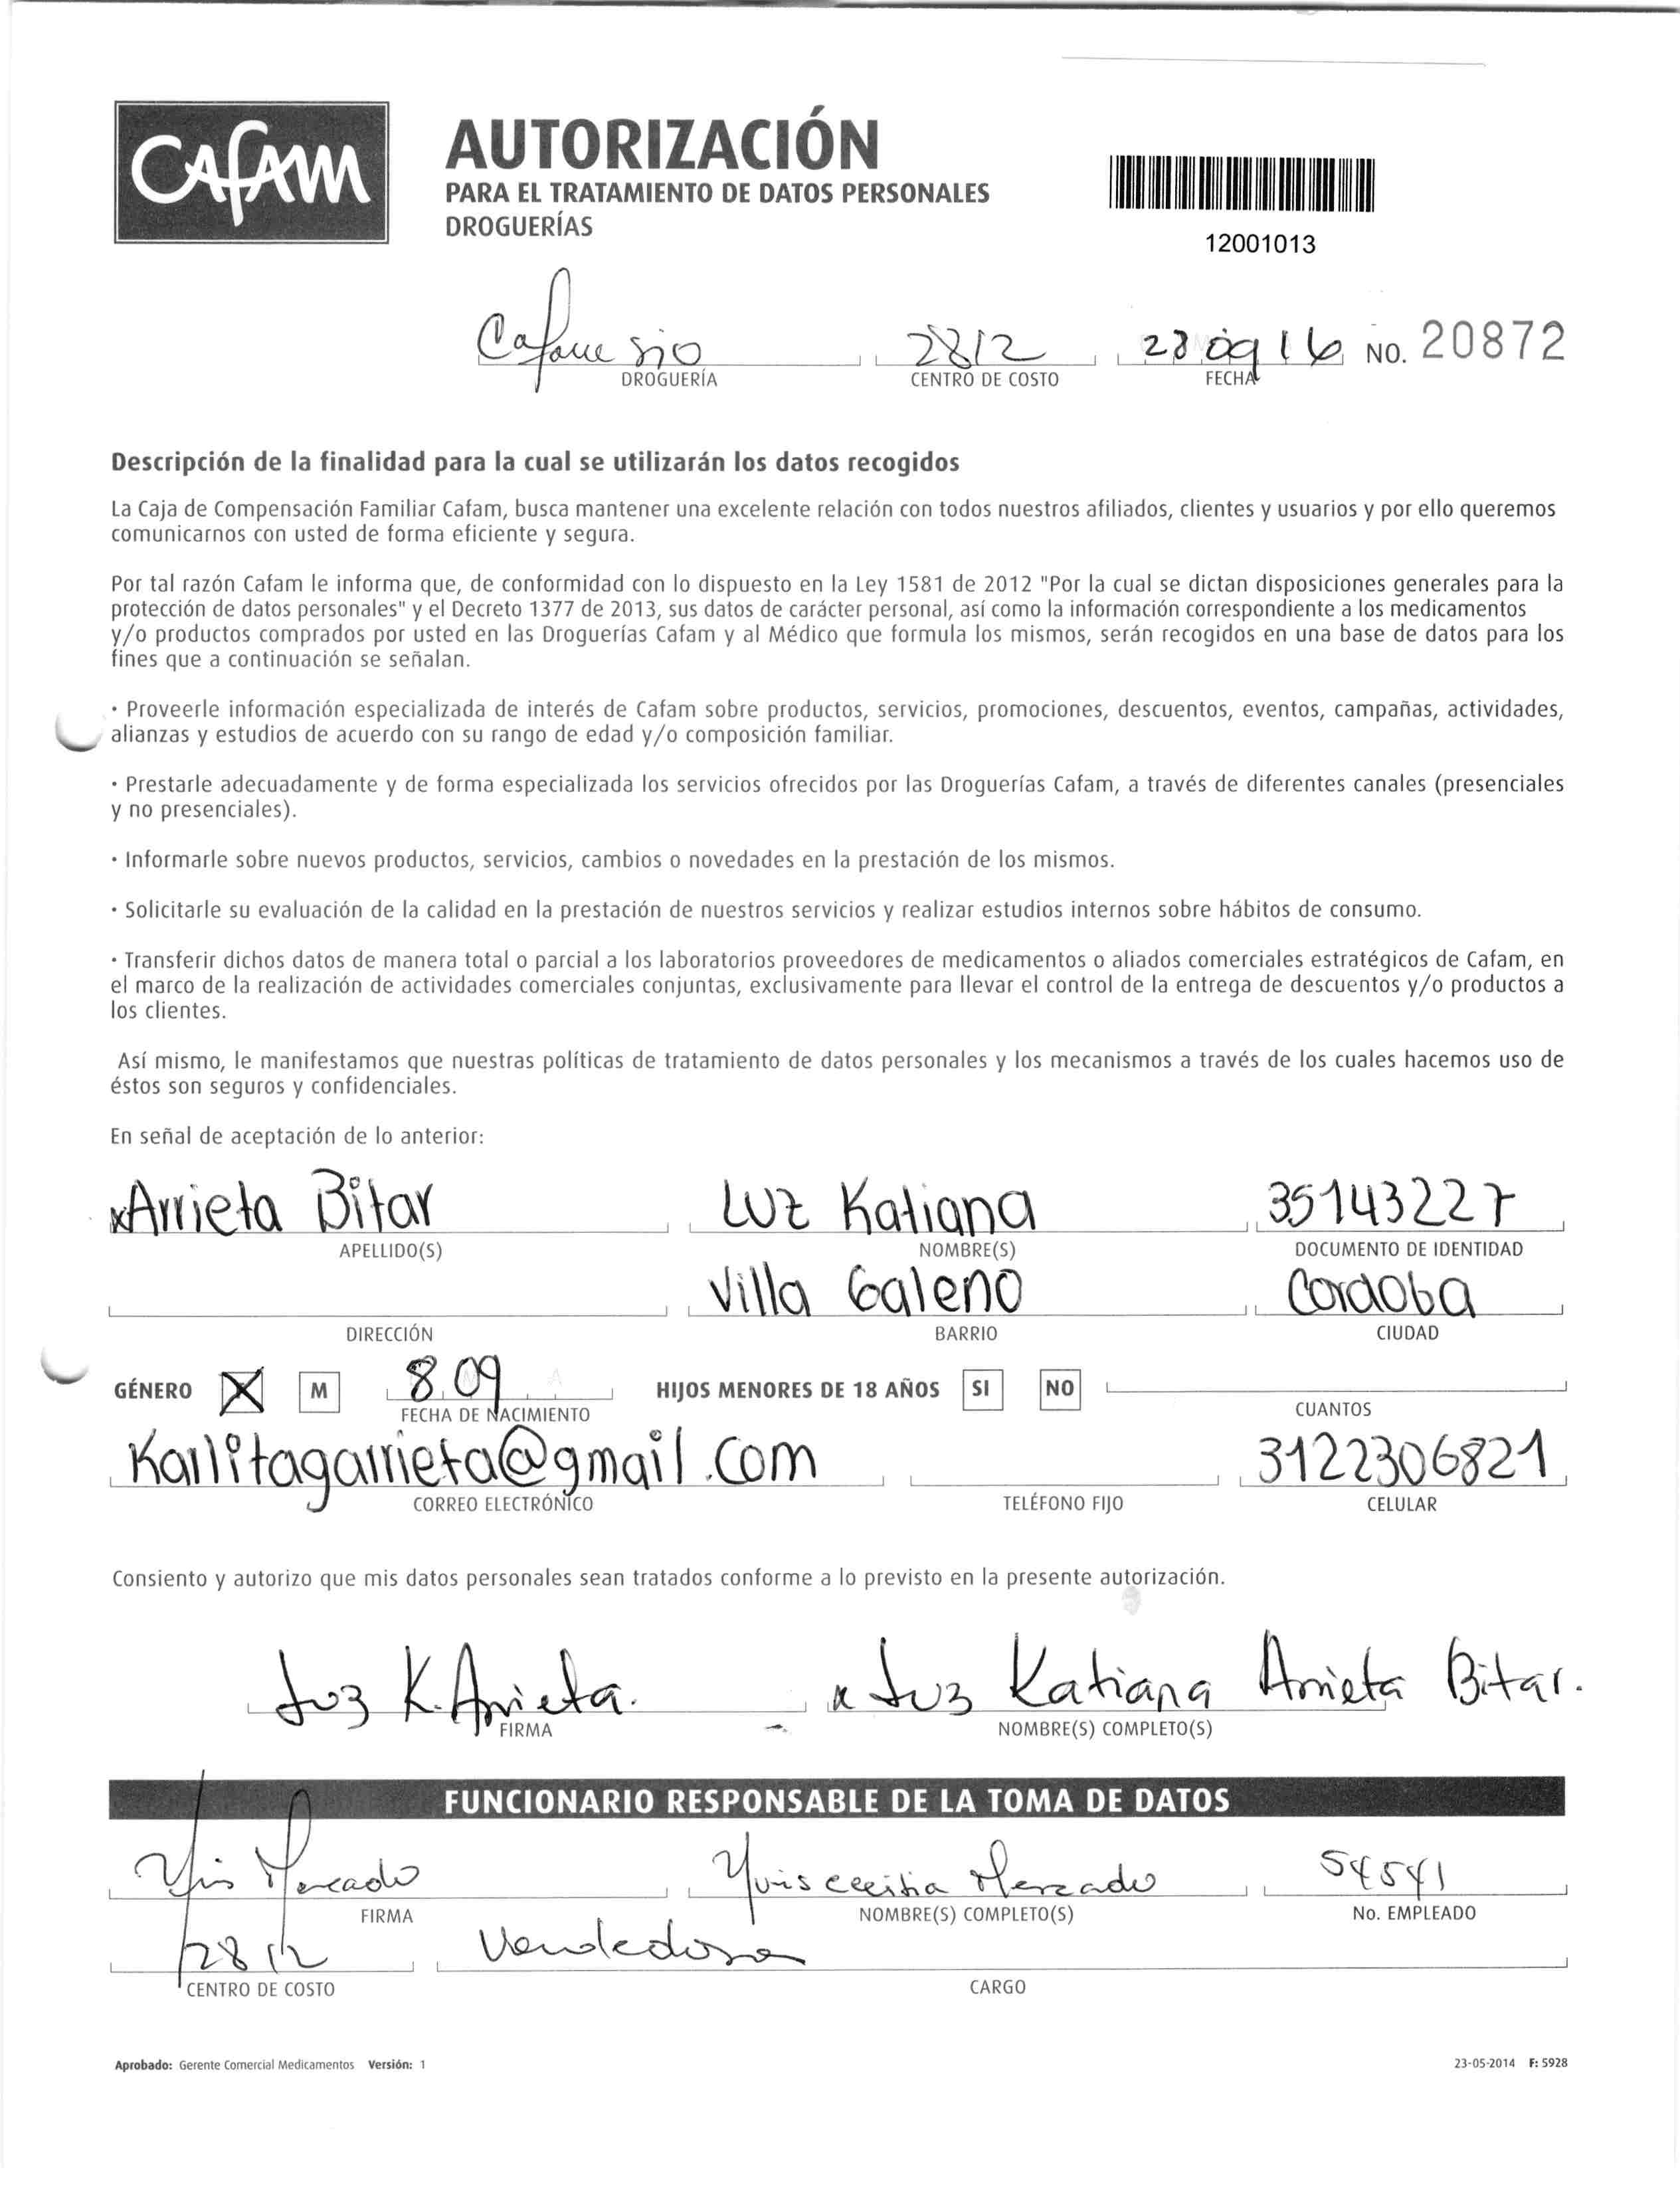 CAFAM
AUTORIZACIÓN
PARA EL TRATAMIENTO DE DATOS PERSONALES
DROGUERÍAS
12001013
2812 28 09 16 NO. 20872
DROGUERÍA CENTRO DE COSTO FECHA
Descripción de la finalidad para la cual se utilizarán los datos recogidos
La Caja de Compensación Familiar Cafam, busca mantener una excelente relación con todos nuestros afiliados, clientes y usuarios y por ello queremos
comunicarnos con usted de forma eficiente y segura.
Por tal razón Cafam le informa que, de conformidad con lo dispuesto en la Ley 1581 de 2012 "Por la cual se dictan disposiciones generales para la
protección de datos personales" y el Decreto 1377 de 2013, sus datos de carácter personal, así como la información correspondiente a los medicamentos
y/o productos comprados por usted en las Droguerías Cafam y al Médico que formula los mismos, serán recogidos en una base de datos para los
fines que a continuación se señalan.
· Proveerle información especializada de interés de Cafam sobre productos, servicios, promociones, descuentos, eventos, campañas, actividades,
alianzas y estudios de acuerdo con su rango de edad y/o composición familiar.
· Prestarle adecuadamente y de forma especializada los servicios ofrecidos por las Droguerías Cafam, a través de diferentes canales (presenciales
y no presenciales).
· Informarle sobre nuevos productos, servicios, cambios o novedades en la prestación de los mismos.
· Solicitarle su evaluación de la calidad en la prestación de nuestros servicios y realizar estudios internos sobre hábitos de consumo.
· Transferir dichos datos de manera total o parcial a los laboratorios proveedores de medicamentos o aliados comerciales estratégicos de Cafam, en
el marco de la realización de actividades comerciales conjuntas, exclusivamente para llevar el control de la entrega de descuentos y/o productos a
los clientes.
Así mismo, le manifestamos que nuestras políticas de tratamiento de datos personales y los mecanismos a través de los cuales hacemos uso de
éstos son seguros y confidenciales.
En señal de aceptación de lo anterior:
x Arrieta Bitar Luz Katiana 35143227
APELLIDO(S) NOMBRE(S) DOCUMENTO DE IDENTIDAD
Villa Galeno Cordoba
DIRECCIÓN BARRIO CIUDAD
GÉNERO X M 8 09 HIJOS MENORES DE 18 AÑOS SI NO
FECHA DE NACIMIENTO CUANTOS
Karlitagarrieta@gmail.com 3122306821
CORREO ELECTRÓNICO TELÉFONO FIJO CELULAR
Consiento y autorizo que mis datos personales sean tratados conforme a lo previsto en la presente autorización.
Luz K. Arrieta. x Luz Katiana Arrieta Bitar.
FIRMA NOMBRE(S) COMPLETO(S)
FUNCIONARIO RESPONSABLE DE LA TOMA DE DATOS
Mercado Mercado 54541
FIRMA NOMBRE(S) COMPLETO(S) No. EMPLEADO
2812 Vendedora
CENTRO DE COSTO CARGO
Aprobado: Gerente Comercial Medicamentos Versión: 1 23-05-2014 F: 5928